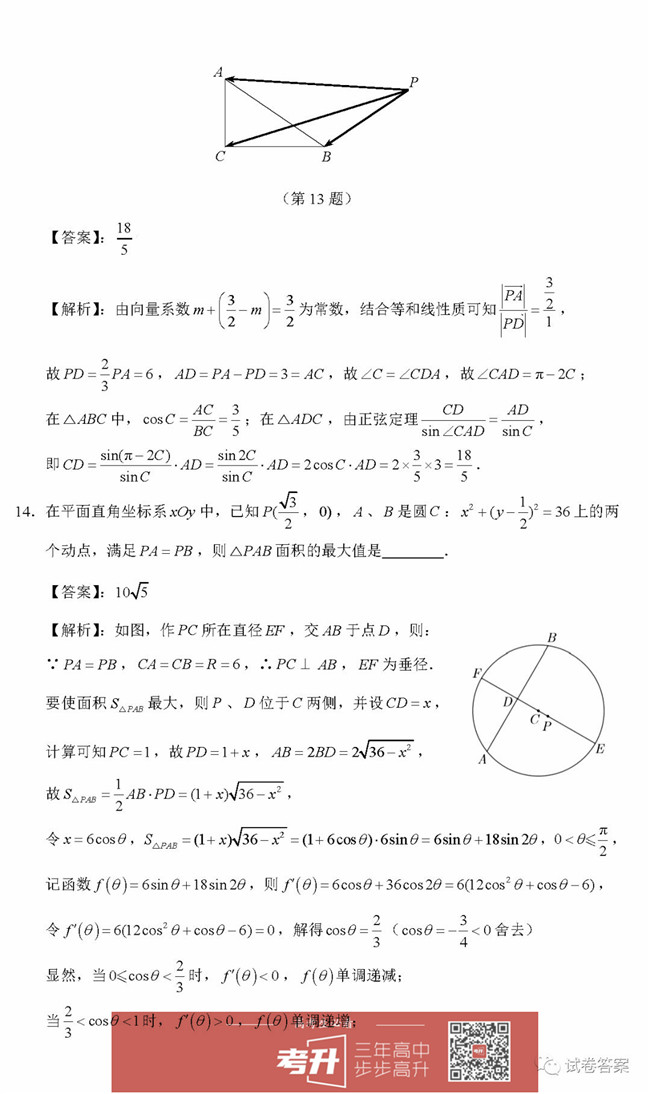 A
P
C
B
（第 13 题）
【答案】：18/5
【解析】：由向量系数 m+(3/2−m)=3/2 为常数，结合等和线性质可知 |PA|/|PD|=(3/2)/1，
故 PD=2/3PA=6，AD=PA−PD=3=AC，故∠C=∠CDA，故∠CAD=π−2C；
在△ABC 中，cosC=AC/BC=3/5；在△ADC，由正弦定理 CD/sin∠CAD=AD/sinC，
即 CD=sin(π−2C)/sinC·AD=sin2C/sinC·AD=2cosC·AD=2×3/5×3=18/5．
14．在平面直角坐标系 xOy 中，已知 P(√3/2，0)，A、B 是圆 C：x²+(y−1/2)²=36 上的两
个动点，满足 PA=PB，则△PAB 面积的最大值是________．
【答案】：10√5
【解析】：如图，作 PC 所在直径 EF，交 AB 于点 D，则：
∵ PA=PB，CA=CB=R=6，∴PC⊥AB，EF 为垂径．
要使面积 S△PAB 最大，则 P、D 位于 C 两侧，并设 CD=x，
计算可知 PC=1，故 PD=1+x，AB=2BD=2√36−x²，
故 S△PAB=1/2AB·PD=(1+x)√36−x²，
B
F
D
C
P
A
E
令 x=6cosθ，S△PAB=(1+x)√36−x²=(1+6cosθ)·6sinθ=6sinθ+18sin2θ，0<θ≤π/2，
记函数 f(θ)=6sinθ+18sin2θ，则 f′(θ)=6cosθ+36cos2θ=6(12cos²θ+cosθ−6)，
令 f′(θ)=6(12cos²θ+cosθ−6)=0，解得cosθ=2/3（cosθ=−3/4<0舍去）
显然，当0≤cosθ<2/3时，f′(θ)<0，f(θ)单调递减；
当2/3<cosθ<1时，f′(θ)>0，f(θ)单调递增；
考升
三年高中
步步高升
试卷答案